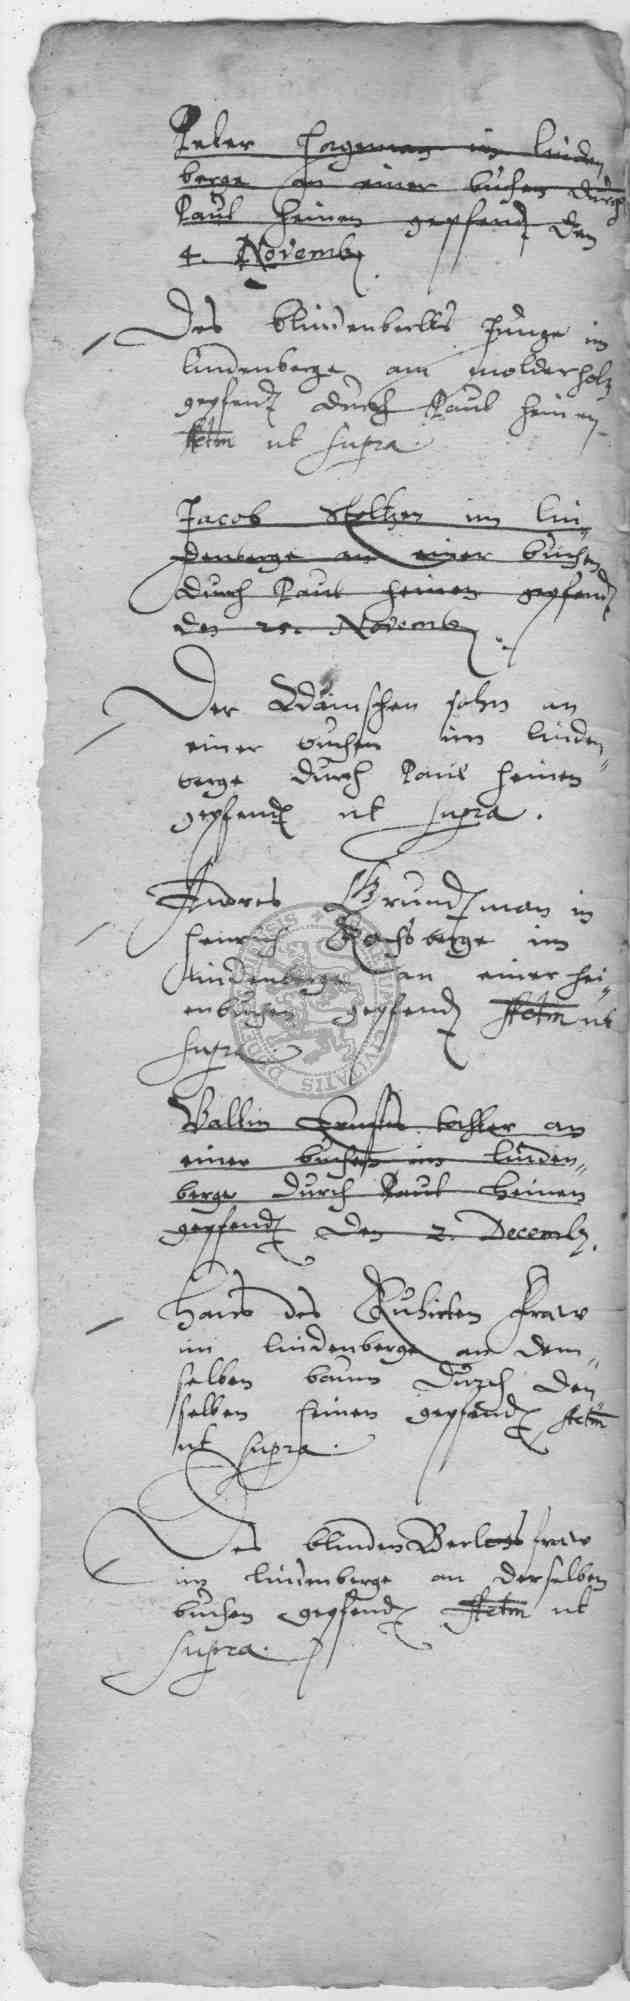 Peter Hageman im linden
berge an einer buchen durch
Paul Heinen gepfend den
4. Novemb
Des blindenberlts Junge im
lindenberge am molderholz
gepfend durch Paul Heinen
Actm ut supra.
Jacob Stoltzen im lin„
denberge an einer buchen
durch Paul Heinen gepfend
den 25. Novemb
Der sohn an
einer buchen im linden„
berge durch Paul Heinen
gepfend ut supra.
Andres Grundtman in
Heinrich berge im
lindenberge an einer hei„
enbuchen gepfend Actm ut
supra
Valtin tochter an
einer buchen im linden„
berge durch Paul Heinen
gepfend den 2. Decemb.
Hans des Kuhirten fraw
im lindenberge an dem„
selben baum durch den„
selben Heinen gepfend Actm
ut supra.
Des blinden fraw
im lindenberge an derselben
buchen gepfend Actm ut
supra.